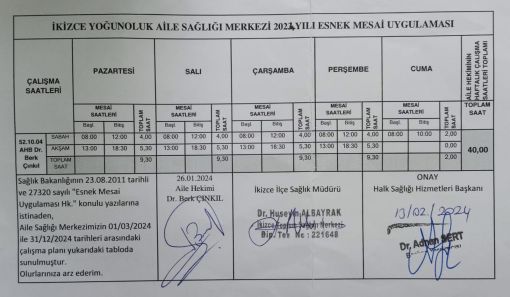 İKİZCE YOĞUNOLUK AİLE SAĞLIĞI MERKEZİ 2024 YILI ESNEK MESAİ UYGULAMASI
ÇALIŞMA SAATLERİ PAZARTESİ SALI ÇARŞAMBA PERŞEMBE CUMA AİLE HEKİMİNİN HAFTALIK ÇALIŞMA SAATLERİ TOPLAMI
MESAİ SAATLERİ TOPLAM SAAT MESAİ SAATLERİ TOPLAM SAAT MESAİ SAATLERİ TOPLAM SAAT MESAİ SAATLERİ TOPLAM SAAT MESAİ SAATLERİ TOPLAM SAAT TOPLAM SAAT
Başl. Bitiş Başl. Bitiş Başl. Bitiş Başl. Bitiş Başl. Bitiş
52.10.04 AHB Dr. Berk Çınkıl
SABAH 08:00 12:00 4,00 08:00 12:00 4,00 08:00 12:00 4,00 08:00 12:00 4,00 08:00 10:00 2,00
AKŞAM 13:00 18:30 5,30 13:00 18:30 5,30 13:00 18:30 5,30 13:00 18:30 5,30 0,00
TOPLAM SAAT 9,30 9,30 9,30 9,30 2,00
40,00
Sağlık Bakanlığının 23.08.2011 tarihli
ve 27320 sayılı "Esnek Mesai
Uygulaması Hk." konulu yazılarına
istinaden,
Aile Sağlığı Merkezimizin 01/03/2024
ile 31/12/2024 tarihleri arasındaki
çalışma planı yukarıdaki tabloda
sunulmuştur.
Olurlarınıza arz ederim.
26.01.2024
Aile Hekimi
Dr. Berk ÇINKIL
İkizce İlçe Sağlık Müdürü
Dr. Huseyin ALBAYRAK
İkizce Toplum Sağlığı Merkezi
Dip. Tes No : 221648
ONAY
Halk Sağlığı Hizmetleri Başkanı
13/02/2024
Dr. Adnan SERT